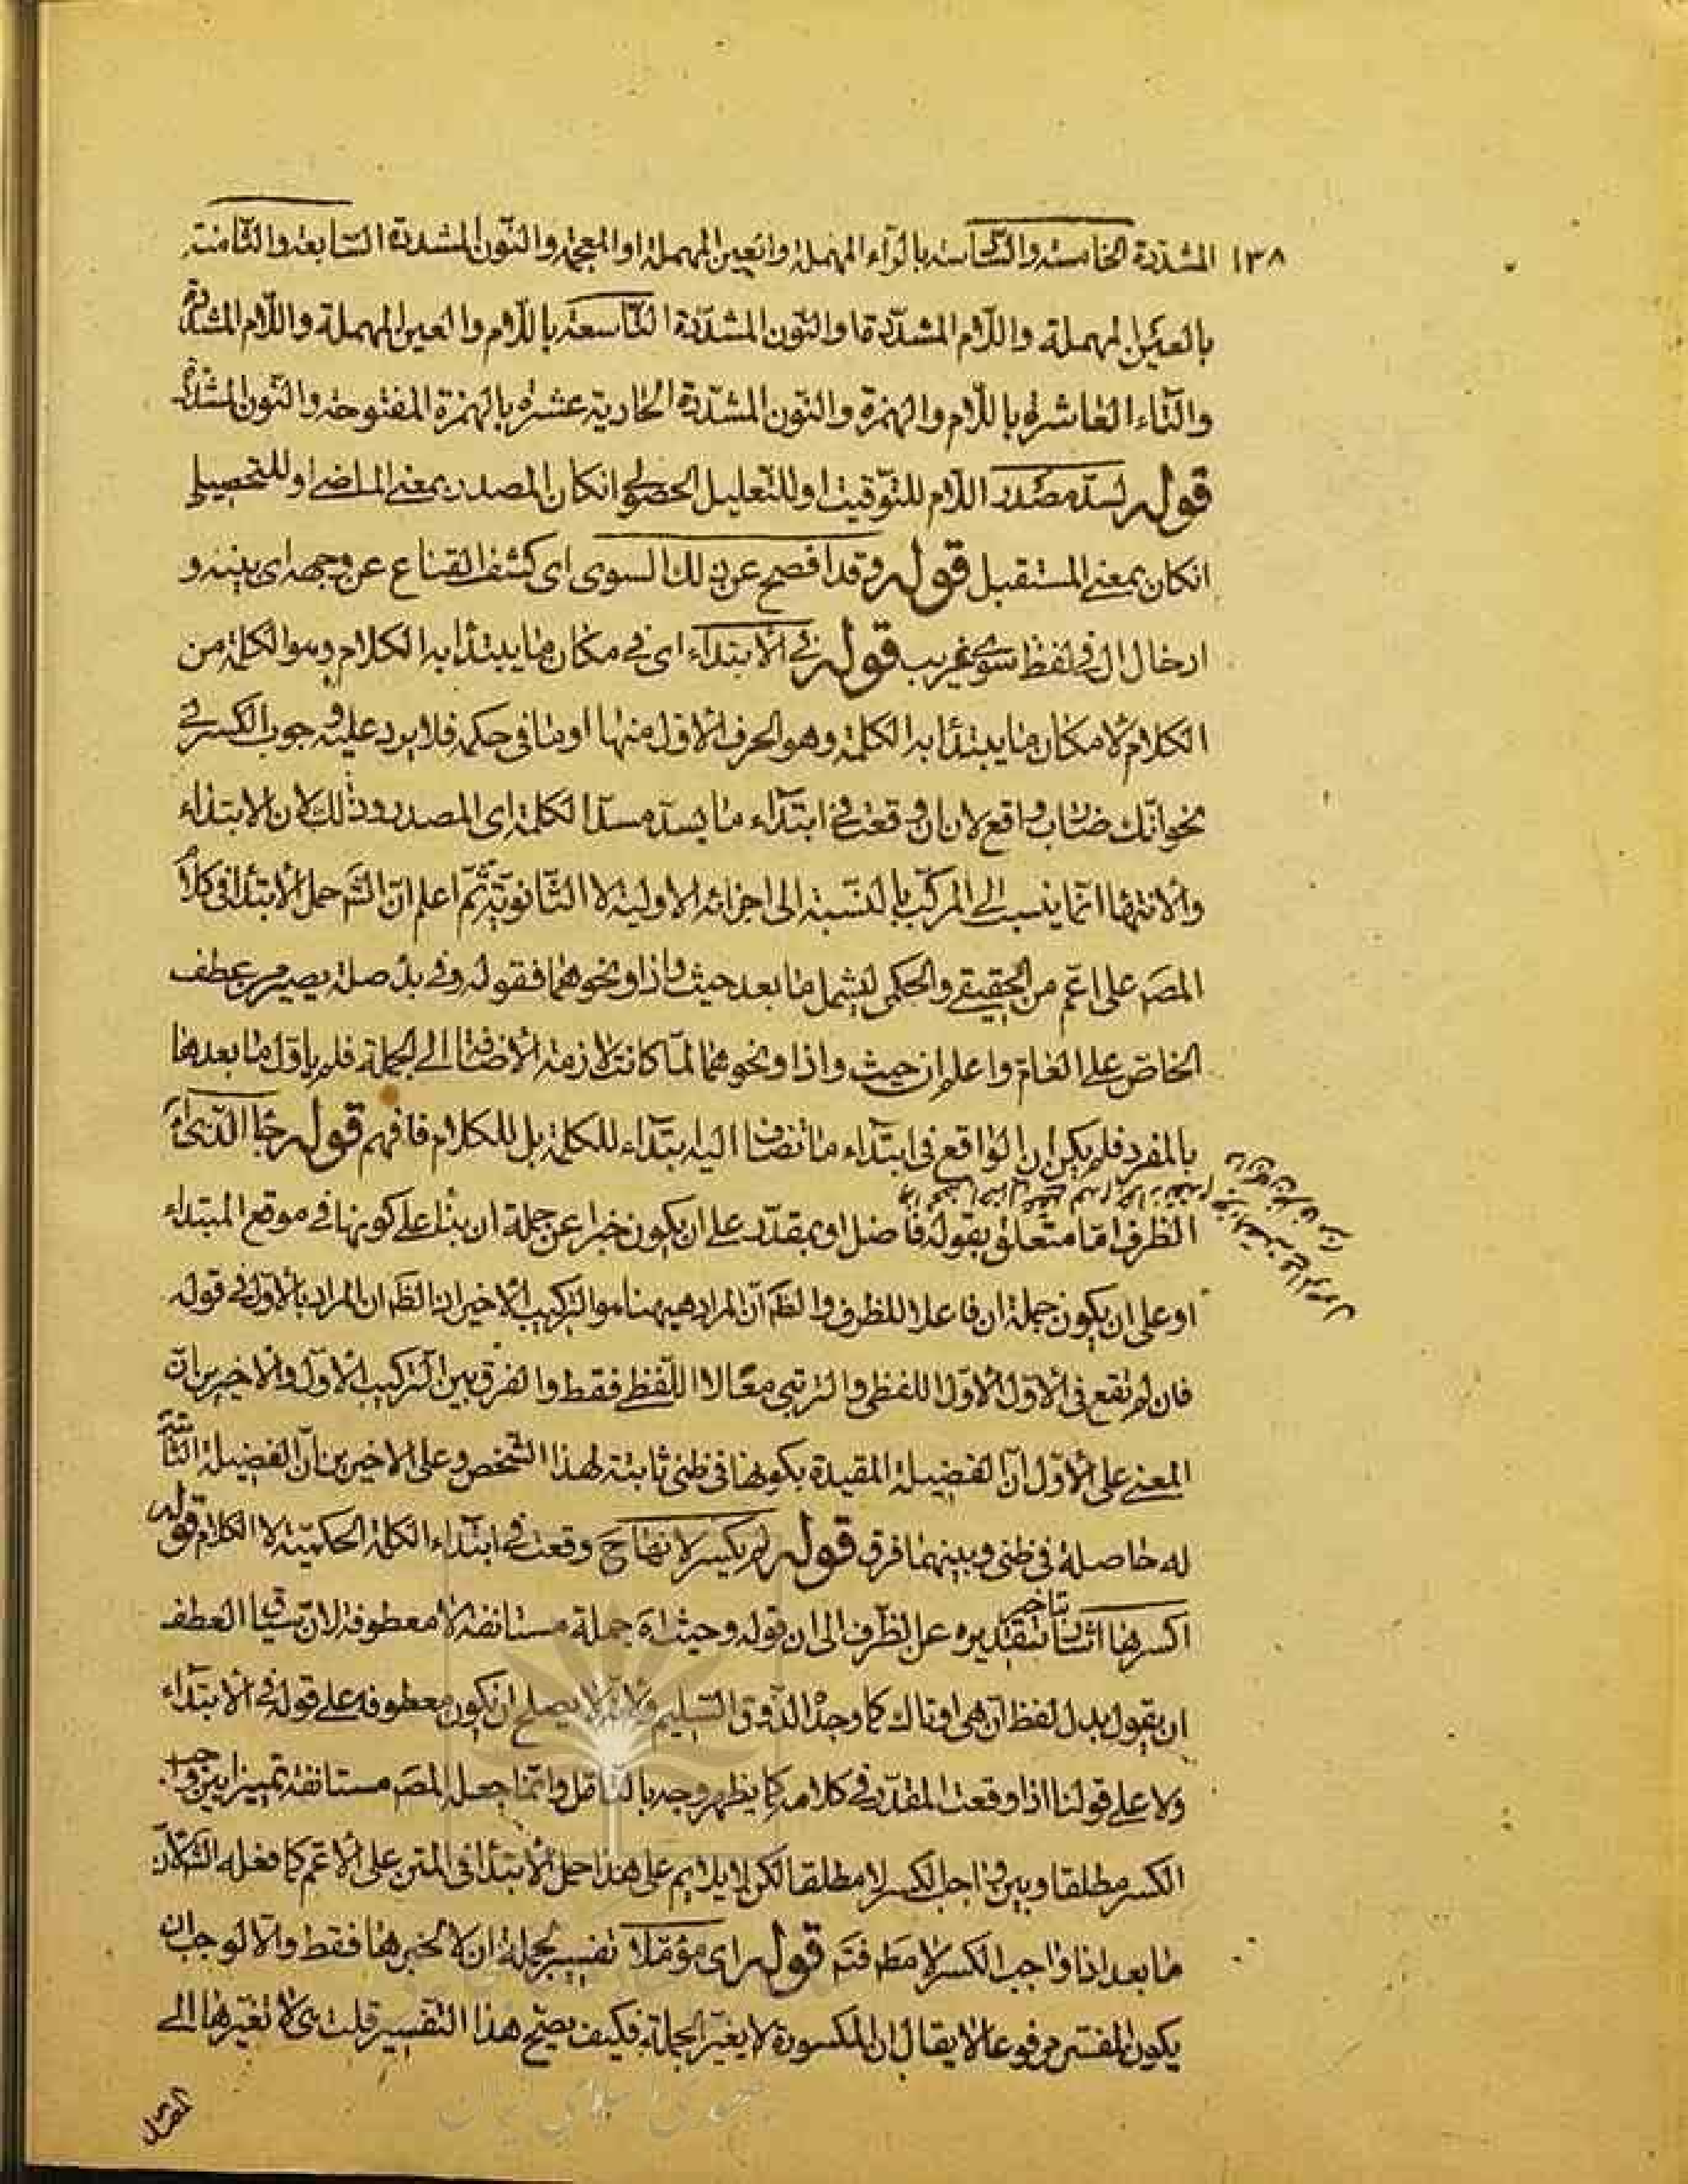 ١٣٨ المشددة الخامسة والسادسة بالراء المهملة والعين المهملة او المعجمة والنون المشددة السابعة والثامنة
بالعين المهملة واللام المشددة او النون المشددة التاسعة باللام والعين المهملة واللام المشددة
والتاء العاشرة باللام والهمزة والنون المشددة الحادية عشرة بالهمزة المفتوحة والنون المشددة
قوله لسد مصدر اللام للتوقيت او للتعليل الحصولى انكان المصدر بمعنى الماضى او للتحصيلى
انكان بمعنى المستقبل قوله وقد افصح عن ذلك السوى اى كشف القناع عن وجهه اى بينه و
ادخال ال فى لفظ سوى غريب قوله فى الابتداء اى فى مكان ما يبتدأ به الكلام وهو الكلمة من
الكلام لا مكان ما يبتدأ به الكلمة وهو الحرف الاول منها او ما فى حكمه فلا يرد عليه وجوب الكسر فى
نحو انك ضارب واقع لان ان وقعت فى ابتداء ما يسد مسد الكلمة اى المصدر وذلك لان الابتداء
والانتها انما ينسب الى المركب بالنسبة الى اجزائه الاولية لا الثانوية ثم اعلم ان الش حمل الابتدأ فى كلام
المص على اعم من الحقيقى والحكمى ليشمل ما بعد حيث واذا ونحوهما فقوله وفى بدء صلة يصير من عطف
الخاص على العام واعلم ان حيث واذا ونحوهما لما كانت لازمة الاضافة الى الجملة فلم ياول ما بعدها
بالمفرد فلم يكن ان الواقع فى ابتداء ما تضاف اليه ابتداء للكلمة بل للكلام فافهم قوله جا الذى
الظرف اما متعلق بقوله فاضل او بمقدر على ان يكون خبرا عن جملة ان بنا على كونها فى موقع المبتداء
او على ان يكون جملة ان فاعلا للظرف والظم ان المراد هيهنا هو التركيب الاخير اذ الظم ان المراد بالاول فى قوله
فان لم تقع فى الاول الاول اللفظى والرتبى معا لا اللفظى فقط والفرق بين التركيب الاول والاخيرين ان
المعنى على الاول ان الفضيلة المقيدة بكونها فى ظنى ثابتة لهذا الشخص وعلى الاخيرين ان الفضيلة الثابتة
له حاصلة فى ظنى وبينهما فرق قوله لم يكسر لانها ح وقعت فى ابتداء الكلمة الحكمية لا الكلام قوله
اكسرها اشار بتقديره عن الظرف الى ان قوله وحيث اه جملة مستانفة لا معطوفة لان سياق العطف
ان يقول بدل لفظ ان هى او ذاك كما وجد الذوق السليم ولانه لا يصلح ان يكون معطوفه على قوله فى الابتداء
ولا على قولنا اذا وقعت المقدر فى كلامه كما يظهر وجه بالتامل وانما جعل المص مستانفة تميزا بين واجب
الكسر مطلقا وبين واجب الكسر لا مطلقا لكن لا يلايم على هذا حمل الابتدأ فى المتن على الاعم كما فعله الش لان
ما بعد اذا واجب الكسر لا مطم فتم قوله اى مؤملا تفسير لجملة ان لا لخبرها فقط والا لوجب ان
يكون المفسر مرفوعا لا يقال ان المكسورة لا يغير الجملة فكيف يصح هذا التفسير قلت نى لا تغيرها الى